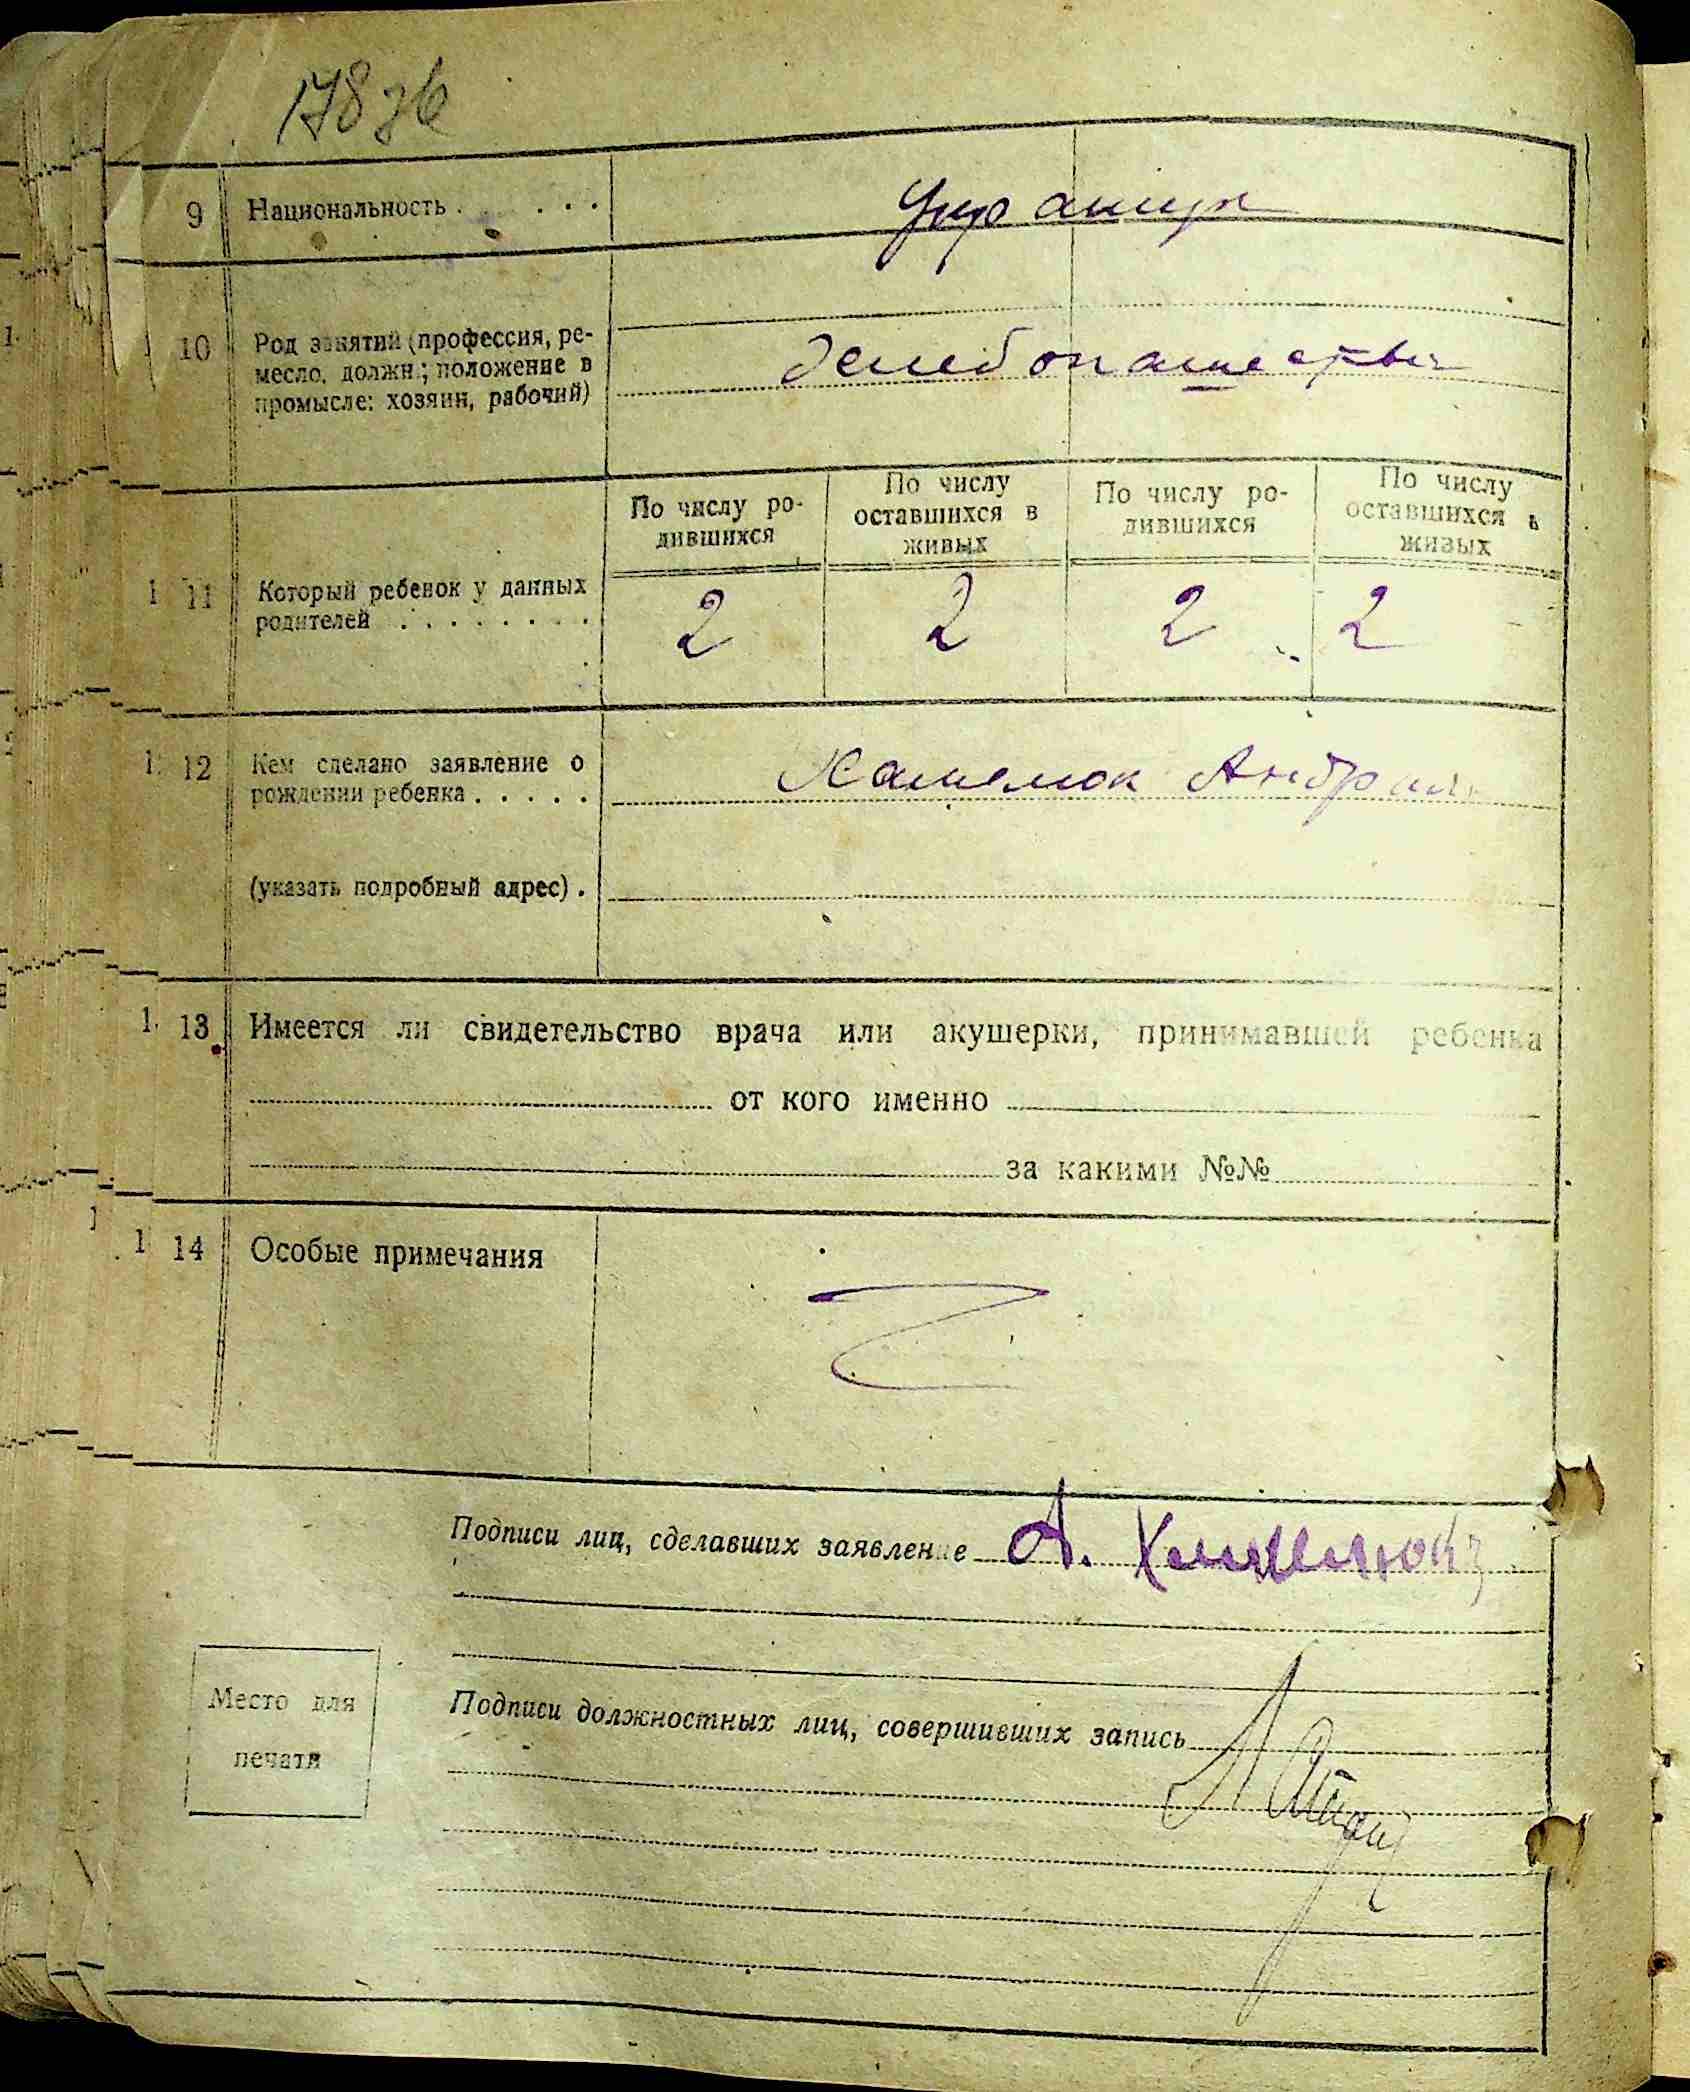 178
9 Национальность . . . . Украинцы
10 Род занятий (профессия, ре-
месло, должн.; положение в
промысле: хозяин, рабочий)
По числу ро-
дившихся
По числу
оставшихся в
живых
По числу ро-
дившихся
По числу
оставшихся в
живых
11 Который ребенок у данных
родителей . . . . . . . .
2 2 2 2
12 Кем сделано заявление о
рождении ребенка . . . . .
(указать подробный адрес) .
13 Имеется ли свидетельство врача или акушерки, принимавшей ребенка
от кого именно
за какими №№
14 Особые примечания
Подписи лиц, сделавших заявление А.
Место для
печати
Подписи должностных лиц, совершивших запись